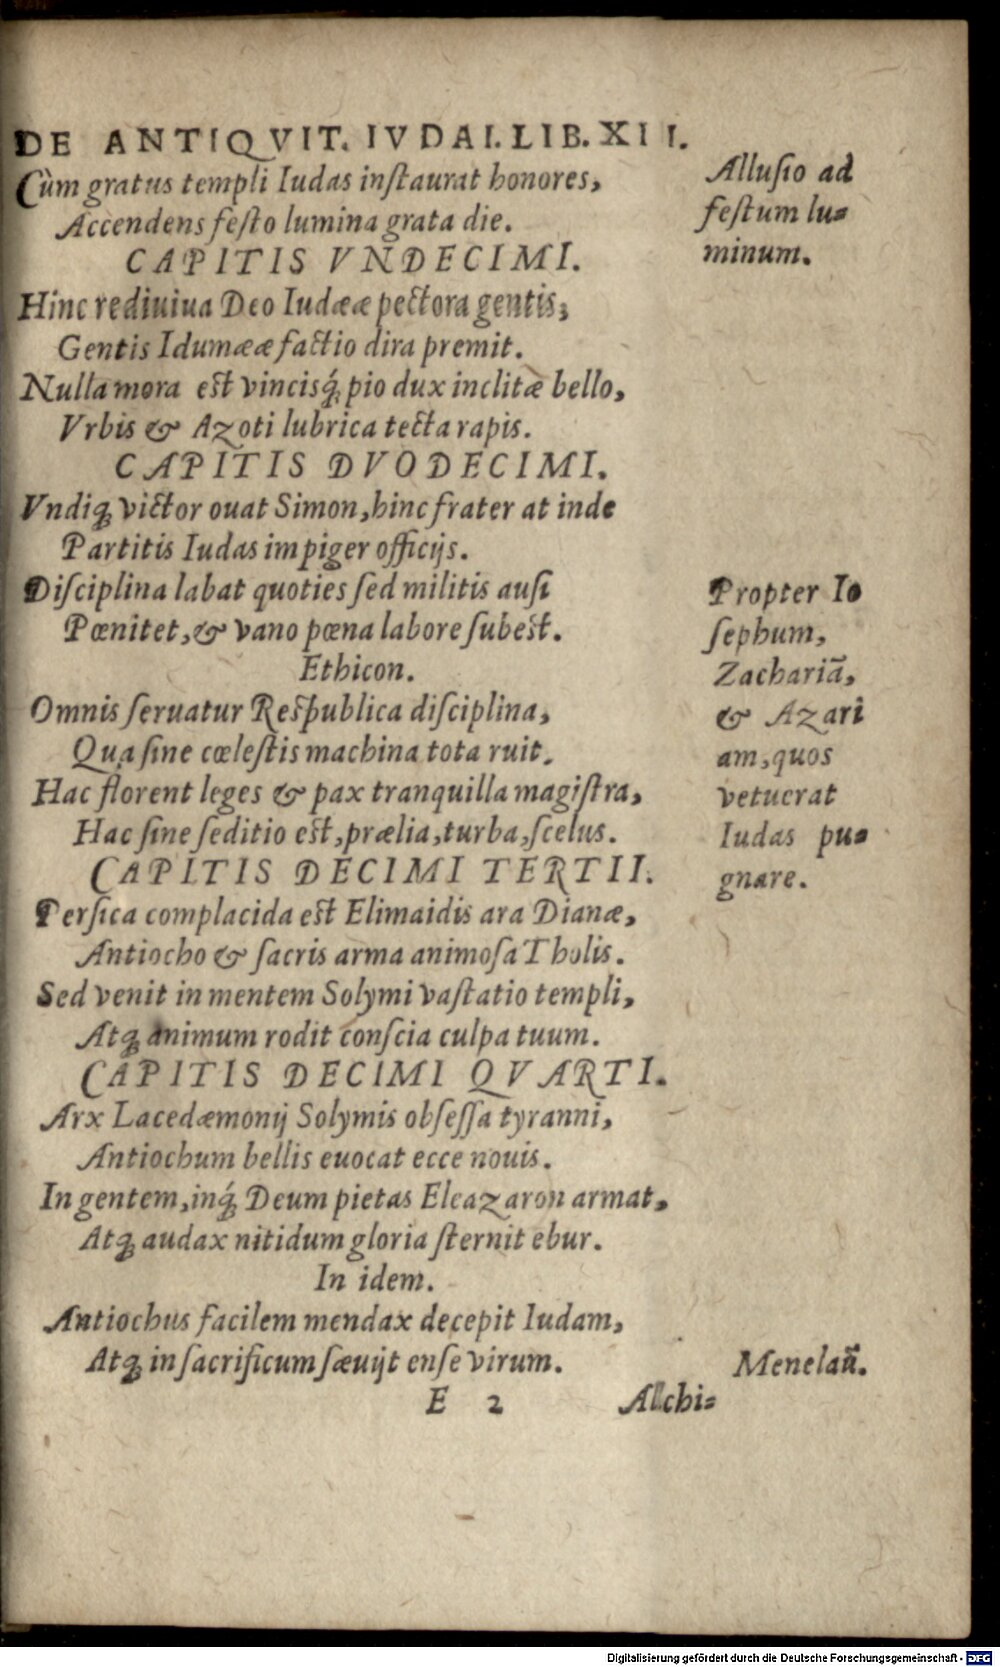 DE ANTIQVIT. IVDAI. LIB. XII.
Cùm gratus templi Iudas inſtaurat honores,
Accendens feſto lumina grata die.
Alluſio ad
feſtum lu-
minum.
CAPITIS VNDECIMI.
Hinc rediuiua Deo Iudææ pectora gentis,
Gentis Idumææ factio dira premit.
Nulla mora est vincisq́; pio dux inclitæ bello,
Vrbis & Azoti lubrica tecta rapis.
CAPITIS DVODECIMI.
Vndiq; victor ouat Simon, hinc frater at inde
Partitis Iudas impiger officijs.
Diſciplina labat quoties ſed militis auſi
Pœnitet, & vano pœna labore ſubest.
Ethicon.
Omnis ſeruatur Respublica diſciplina,
Qua ſine cœleſtis machina tota ruit.
Hac florent leges & pax tranquilla magiſtra,
Hac ſine ſeditio est, prælia, turba, ſcelus.
Propter Io
ſephum,
Zachariā,
& Azari
am, quos
vetuerat
Iudas pu-
gnare.
CAPITIS DECIMI TERTII.
Perſica complacida est Elimaidis ara Dianæ,
Antiocho & ſacris arma animoſa Tholis.
Sed venit in mentem Solymi vaſtatio templi,
Atq; animum rodit conſcia culpa tuum.
CAPITIS DECIMI QVARTI.
Arx Lacedæmonij Solymis obſeſſa tyranni,
Antiochum bellis euocat ecce nouis.
In gentem, inq́; Deum pietas Eleazaron armat,
Atq; audax nitidum gloria ſternit ebur.
In idem.
Antiochus facilem mendax decepit Iudam,
Atq; in ſacrificum ſæuijt enſe virum.
Menelaū.
E 2
Alchi-
Digitalisierung gefördert durch die Deutsche Forschungsgemeinschaft - DFG